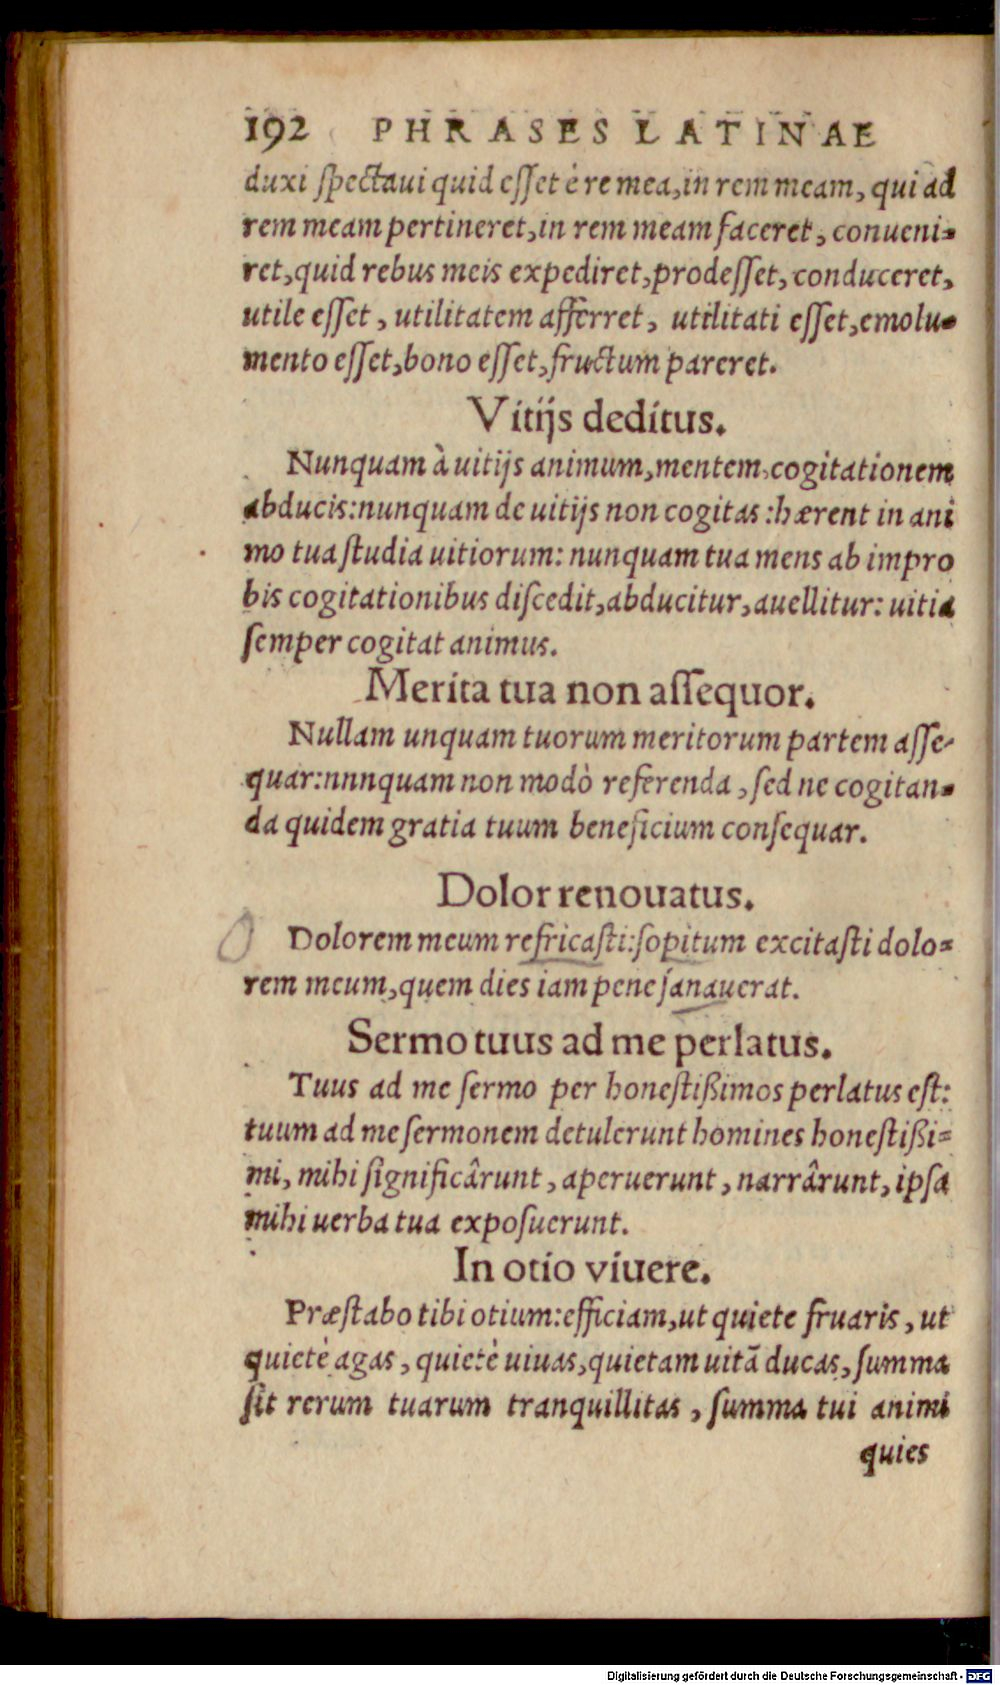 192 PHRASES LATINAE
duxi spectaui quid esset è re mea, in rem meam, qui ad
rem meam pertineret, in rem meam faceret, conueni-
ret, quid rebus meis expediret, prodesset, conduceret,
utile esset, utilitatem afferret, utilitati esset, emolu-
mento esset, bono esset, fructum pareret.
Vitijs deditus.
Nunquam à uitijs animum, mentem, cogitationem
abducis: nunquam de uitijs non cogitas: hærent in ani
mo tua studia uitiorum: nunquam tua mens ab impro
bis cogitationibus discedit, abducitur, auellitur: uitia
semper cogitat animus.
Merita tua non assequor.
Nullam unquam tuorum meritorum partem asse-
quar: nnnquam non modò referenda, sed ne cogitan-
da quidem gratia tuum beneficium consequar.
Dolor renouatus.
Dolorem meum refricasti: sopitum excitasti dolo-
rem meum, quem dies iam pene sanauerat.
Sermo tuus ad me perlatus.
Tuus ad me sermo per honestißimos perlatus est:
tuum ad me sermonem detulerunt homines honestißi-
mi, mihi significârunt, aperuerunt, narrârunt, ipsa
mihi uerba tua exposuerunt.
In otio viuere.
Præstabo tibi otium: efficiam, ut quiete fruaris, ut
quietè agas, quietè uiuas, quietam uitã ducas, summa
sit rerum tuarum tranquillitas, summa tui animi
quies
Digitalisierung gefördert durch die Deutsche Forschungsgemeinschaft - DFG